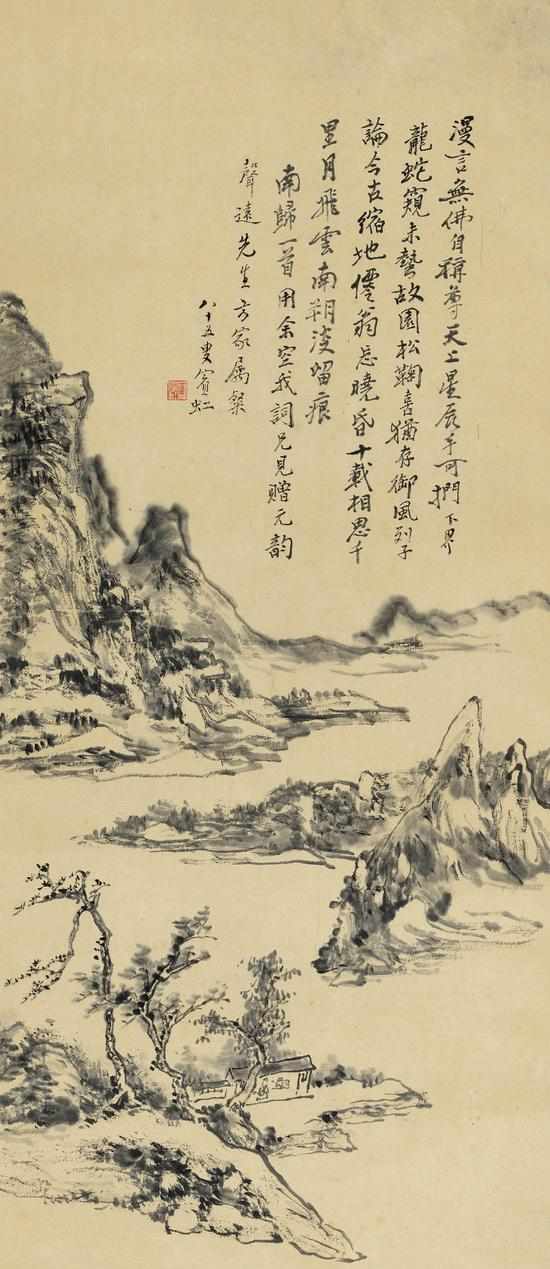 漫言無佛自稱尊天上星辰手可捫下界
龍蛇窺未蟄故園松鞠喜猶存御風列子
論今古縮地僊翁忘曉昏十載相思千
里月飛雲南朔沒留痕
南歸一首用余空我詞兄見贈元韵
聲遠先生方家屬粲
八十五叟賓虹